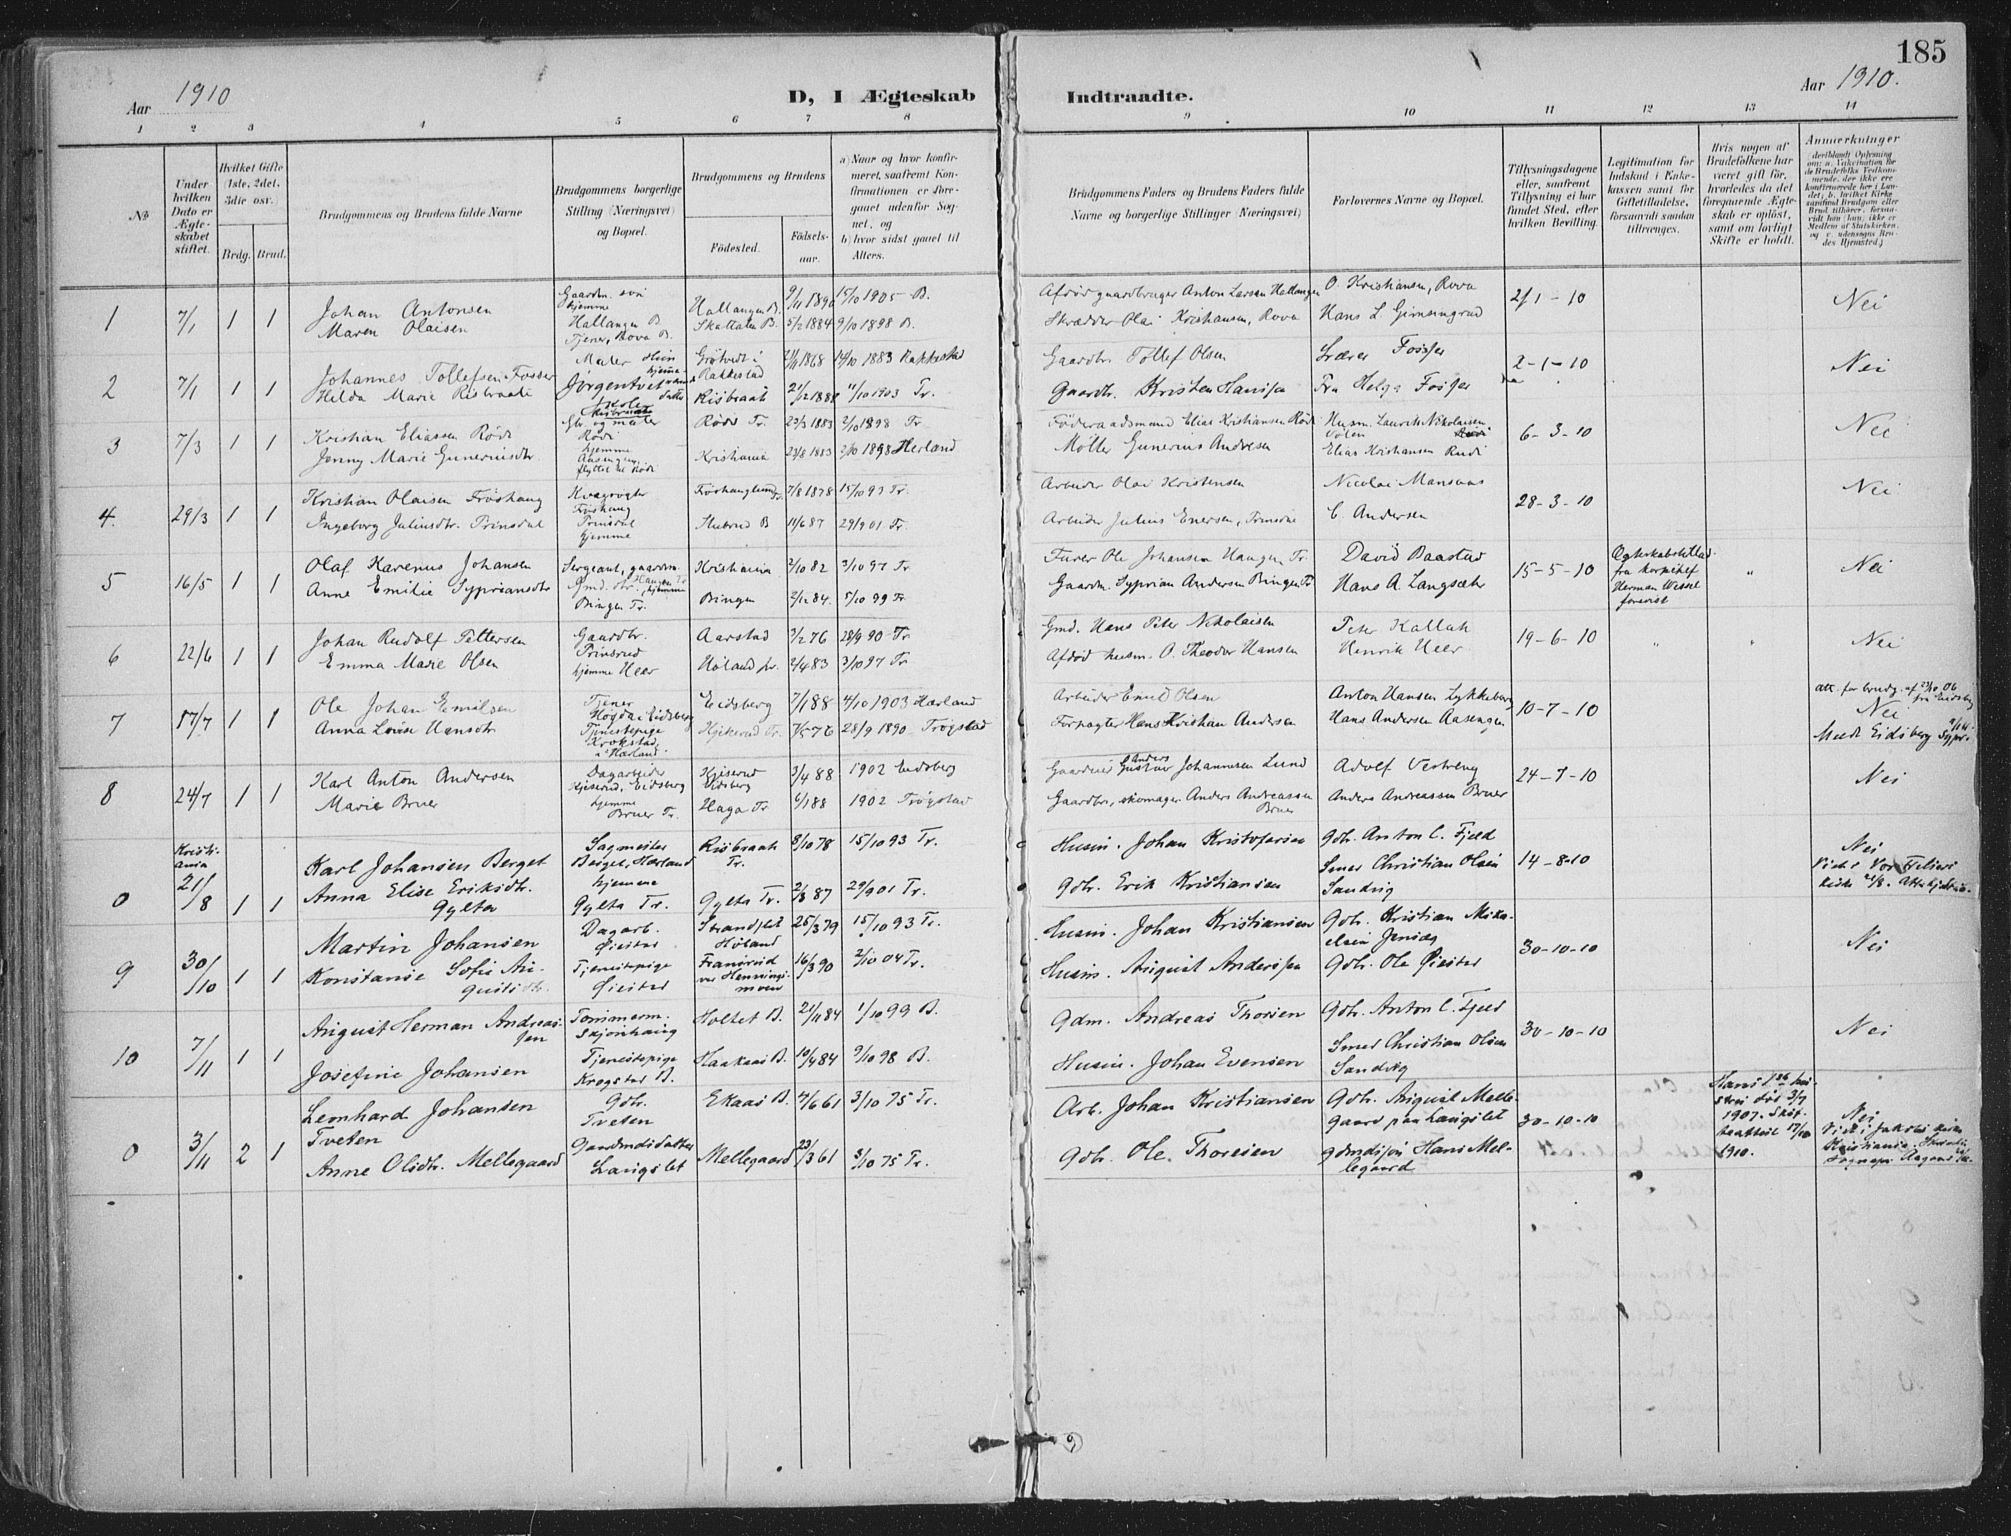 185
Aar 1910
D, I Ægteskab
Indtraadte.
Aar 1910.
1 2 3 4 5 6 7 8 9 10 11 12 13 14
№
Under hvilken Dato er Ægteskabet stiftet.
Hvilket Gifte (1ste, 2det, 3die osv.)
Brdg. Brud.
Brudgommens og Brudens fulde Navne
Brudgommens borgerlige Stilling (Næringsvei) og Bopæl.
Brudgommens og Brudens
Fødested.
Fødselsaar.
a) Naar og hvor konfirmeret, saafremt Konfirmationen er foregaaet udenfor Sognet, og
b) hvor sidst gaaet til Alters.
Brudgommens Faders og Brudens Faders fulde Navne og borgerlige Stillinger (Næringsvei)
Forlovernes Navne og Bopæl.
Tillysningsdagene eller, saafremt Tillysning ei har fundet Sted, efter hvilken Bevilling.
Legitimation for Indskud i Enkekassen samt for Giftetilladelse, forsaavidt saadan tiltrænges.
Hvis nogen af Brudefolkene har været gift før, hvorledes da det foregaaende Ægteskab er opløst, samt om lovligt Skifte er holdt.
Anmerkninger
1 7/1 1 1 Johan Antonsen Gaardm. søn hjemme Hallangen B. Hallangen B. 15/10 1905 B. Afdød gaardbruger Anton Larsen Hallangen O. Kristiansen, Rova 2/1-10 Nei
Maren Olaisen Tjener, Rova B. Skallaten B. 5/2 1884 9/10 1898 B. Skrædder Olai Kristiansen, Rova Hans L. Gimsingrud
2 7/1 1 1 Johannes Tollefsen Fosser Maler Grötvedt i Rakkestad 1868 14/10 1883 Rakkestad Gaardbr. Tollef Olsen Lærer Fosser 2-1-10 Nei
Hilda Marie Risbraate Risbraat 21/12 1888 11/10 1903 Tr. Gaardbr. Kristen Hansen Fru Helga Fosser
3 7/3 1 1 Kristian Eliassen Rödi Gbr. og maler Rödi Rödi Tr. 23/3 1883 2/10 1898 Tr. Föderaadsmand Elias Kristiansen Rödi Husm. Laurits Nikolaisen 6-3-10 Nei
Jenny Marie Guneriusdtr hjemme Aasengen, flyttet til Rödi Kristiania 23/8 1883 2/10 1898 Herland Møller Gunerius Andresen Elias Kristiansen Rudi
4. 29/3 1 1 Kristian Olaisen Fröshaug Kvægrogter Fröshaug Fröshauglund Tr. 7/8 1878 15/10 93 Tr. Arbeider Olai Kristensen Nicolai Mansaas 28-3-10 Nei
Ingeborg Juliusdtr. Prinsdal Prinsdal hjemme Stubrud B 11/6 87 29/9 01 Tr. Arbeider Julius Enersen, Prinsdal C. Andersen
5 16/5 1 1 Olaf Karenus Johansen Sergeant, gaardm. Haugen Tr Kristiania 2/10 82 3/10 97 Tr Furer Ole Johansen Haugen Tr. David Baastad 15-5-10 Egteskabstillad. fra Korpschef Herman Wessel forevist " Nei
Anne Emilie Sypriansdtr Gmd. dtr. hjemme Bingen Tr. Bingen 2/12 84. 1/10 99 Tr. Gaardm. Syprian Andersen Bingen Tr Hans A. Langsæter
6 22/6 1 1 Johan Rudolf Pettersen Gaardbr. Prinsrud Aarstad 3/2 76 28/9 90 Tr Gmd. Hans Peter Nikolaisen Peter Kallak 19-6-10 " " Nei
Emma Marie Olsen hjemme Heer Höland pr. 2/4 83 3/10 97 Tr. Afdød husm. O. Theodor Hansen Henrik Heer
7 17/7 1 1 Ole Johan Emilsen Tjener Høgda i Eidsberg Eidsberg 7/1 88 4/10 1903 Hærland Arbeider Emil Olsen Anton Hansen Lykkeberg 10-7-10 att. for brudg. af 23/10 06 fra Eidsberg Nei
Anna Lovise Hansdtr Tjenestepige Krokstad i Hærland Hjikerud Tr. 7/5 76 28/9 1890 Trøgstad Forpagter Hans Kristian Andersen Hans Andersen Aasengen Meldt Eidsberg Sypr.
8 24/7 1 1 Karl Anton Andersen Dagarbeider Kjiserud, Eidsberg Kjiserud Eidsberg 3/4 88 1902 Eidsberg Gaardeier Anders Gustav Johannesen Lund Adolf Vestreng 24-7-10 Nei
Marie Bruer hjemme Bruer Tr. Haga Tr 4/1 88 1902 Trøgstad Gaardbr., skomager Anders Andreassen Bruer Anders Andreassen Bruer
0 Kristiania 21/8 1 1 Karl Johansen Berget Sagmester Berget, Hærland Risbraat Tr. 8/10 78 15/10 93 Tr. Husm. Johan Kristofersen Gbr. Anton C. Fjeld 14-8-10 Nei
Anna Elise Eriksdtr. Gylta hjemme Gylta Tr. Gylta Tr. 2/3 87 29/9 01 Tr. Gbr. Erik Kristiansen Smed Christian Olsen Sandvig Viet i Vor Frelsers Kirke 21/8.
9 30/10 1 1 Martin Johansen Dagarb. Øiestad Strandslet Høland 25/3 79 15/10 93 Tr. Husm. Johan Kristiansen Gbr. Kristian Mikaelsen Jensæg 30-10-10 Nei
Konstanse Sofie Augustsdtr. Tjenestepige Øiestad Fransrud ved Henningsmoen 16/3 90 2/10 04 Tr. Husm. August Andersen Gbr. Ole Øiestad
10 7/11 1 1 August Herman Andreassen Tømmerm. Skjønhaug Holtet B. 21/11 84 1/10 99 B. Gdm. Andreas Thorsen Gbr. Anton C. Fjeld 30-10-10 Nei
Josefine Johansen Tjenestepige Krogstad B. Haakaas B. 10/4 84 9/10 98 B. Husm. Johan Evensen Smed Christian Olsen Sandvig
0 3/11 2 1 Leonhard Johansen Tveten Gbr. Tveten Ekaas B. 4/6 61 3/10 75 Tr. Arb. Johan Kristiansen Gbr. August Mellegaard paa Langslet 30-10-10 Hans 1ste hustru død 3/9 1907. Skifteattest 17/10 1910. Nei
Anne Olsdtr. Mellegaard Gaardmdsdatter Langslet Mellegaard 23/3 61 3/10 75 Tr. Gbr. Ole Thoresen Gdmdssøn Hans Mellegaard Viet i Jakobs Kirke Kristiania